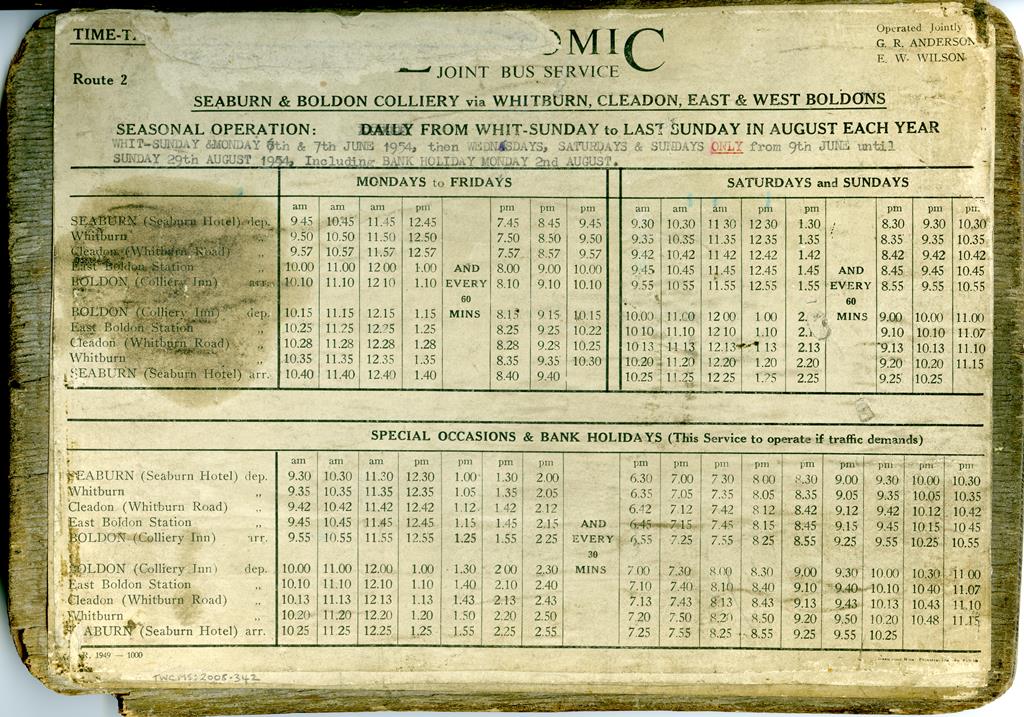 TIME-T.
OMIC
Operated Jointly
G. R. ANDERSON
E. W. WILSON
Route 2
JOINT BUS SERVICE
SEABURN & BOLDON COLLIERY via WHITBURN, CLEADON, EAST & WEST BOLDONS
SEASONAL OPERATION: DAILY FROM WHIT-SUNDAY to LAST SUNDAY IN AUGUST EACH YEAR
WHIT-SUNDAY &MONDAY 6th & 7th JUNE 1954, then WEDNESDAYS, SATURDAYS & SUNDAYS ONLY from 9th JUNE until
SUNDAY 29th AUGUST 1954, Including BANK HOLIDAY MONDAY 2nd AUGUST.
MONDAYS to FRIDAYS SATURDAYS and SUNDAYS
am am am pm pm pm pm am am am pm pm pm pm pm.
SEABURN (Seaburn Hotel) dep. 9.45 10.45 11.45 12.45 7.45 8.45 9.45 9.30 10.30 11.30 12.30 1.30 8.30 9.30 10.30
Whitburn ,, 9.50 10.50 11.50 12.50 7.50 8.50 9.50 9.35 10.35 11.35 12.35 1.35 8.35 9.35 10.35
Cleadon (Whitburn Road) ,, 9.57 10.57 11.57 12.57 7.57 8.57 9.57 9.42 10.42 11.42 12.42 1.42 8.42 9.42 10.42
East Boldon Station ,, 10.00 11.00 12.00 1.00 AND 8.00 9.00 10.00 9.45 10.45 11.45 12.45 1.45 AND 8.45 9.45 10.45
BOLDON (Colliery Inn) arr. 10.10 11.10 12.10 1.10 EVERY 8.10 9.10 10.10 9.55 10.55 11.55 12.55 1.55 EVERY 8.55 9.55 10.55
60 60
BOLDON (Colliery Inn) dep. 10.15 11.15 12.15 1.15 MINS 8.15 9.15 10.15 10.00 11.00 12.00 1.00 2. MINS 9.00 10.00 11.00
East Boldon Station ,, 10.25 11.25 12.25 1.25 8.25 9.25 10.22 10.10 11.10 12.10 1.10 2. 9.10 10.10 11.07
Cleadon (Whitburn Road) ,, 10.28 11.28 12.28 1.28 8.28 9.28 10.25 10.13 11.13 12.13 1.13 2.13 9.13 10.13 11.10
Whitburn ,, 10.35 11.35 12.35 1.35 8.35 9.35 10.30 10.20 11.20 12.20 1.20 2.20 9.20 10.20 11.15
SEABURN (Seaburn Hotel) arr. 10.40 11.40 12.40 1.40 8.40 9.40 10.25 11.25 12.25 1.25 2.25 9.25 10.25
SPECIAL OCCASIONS & BANK HOLIDAYS (This Service to operate if traffic demands)
am am am pm pm pm pm pm pm pm pm pm pm pm pm pm
SEABURN (Seaburn Hotel) dep. 9.30 10.30 11.30 12.30 1.00 1.30 2.00 6.30 7.00 7.30 8.00 8.30 9.00 9.30 10.00 10.30
Whitburn ,, 9.35 10.35 11.35 12.35 1.05 1.35 2.05 6.35 7.05 7.35 8.05 8.35 9.05 9.35 10.05 10.35
Cleadon (Whitburn Road) ,, 9.42 10.42 11.42 12.42 1.12 1.42 2.12 6.42 7.12 7.42 8.12 8.42 9.12 9.42 10.12 10.42
East Boldon Station ,, 9.45 10.45 11.45 12.45 1.15 1.45 2.15 AND 6.45 7.15 7.45 8.15 8.45 9.15 9.45 10.15 10.45
BOLDON (Colliery Inn) arr. 9.55 10.55 11.55 12.55 1.25 1.55 2.25 EVERY 6.55 7.25 7.55 8.25 8.55 9.25 9.55 10.25 10.55
30
BOLDON (Colliery Inn) dep. 10.00 11.00 12.00 1.00 1.30 2.00 2.30 MINS 7.00 7.30 8.00 8.30 9.00 9.30 10.00 10.30 11.00
East Boldon Station ,, 10.10 11.10 12.10 1.10 1.40 2.10 2.40 7.10 7.40 8.10 8.40 9.10 9.40 10.10 10.40 11.07
Cleadon (Whitburn Road) ,, 10.13 11.13 12.13 1.13 1.43 2.13 2.43 7.13 7.43 8.13 8.43 9.13 9.43 10.13 10.43 11.10
Whitburn ,, 10.20 11.20 12.20 1.20 1.50 2.20 2.50 7.20 7.50 8.20 8.50 9.20 9.50 10.20 10.48 11.15
ABURN (Seaburn Hotel) arr. 10.25 11.25 12.25 1.25 1.55 2.25 2.55 7.25 7.55 8.25 8.55 9.25 9.55 10.25
R. 1949 — 1000
TWCMS:2008-342